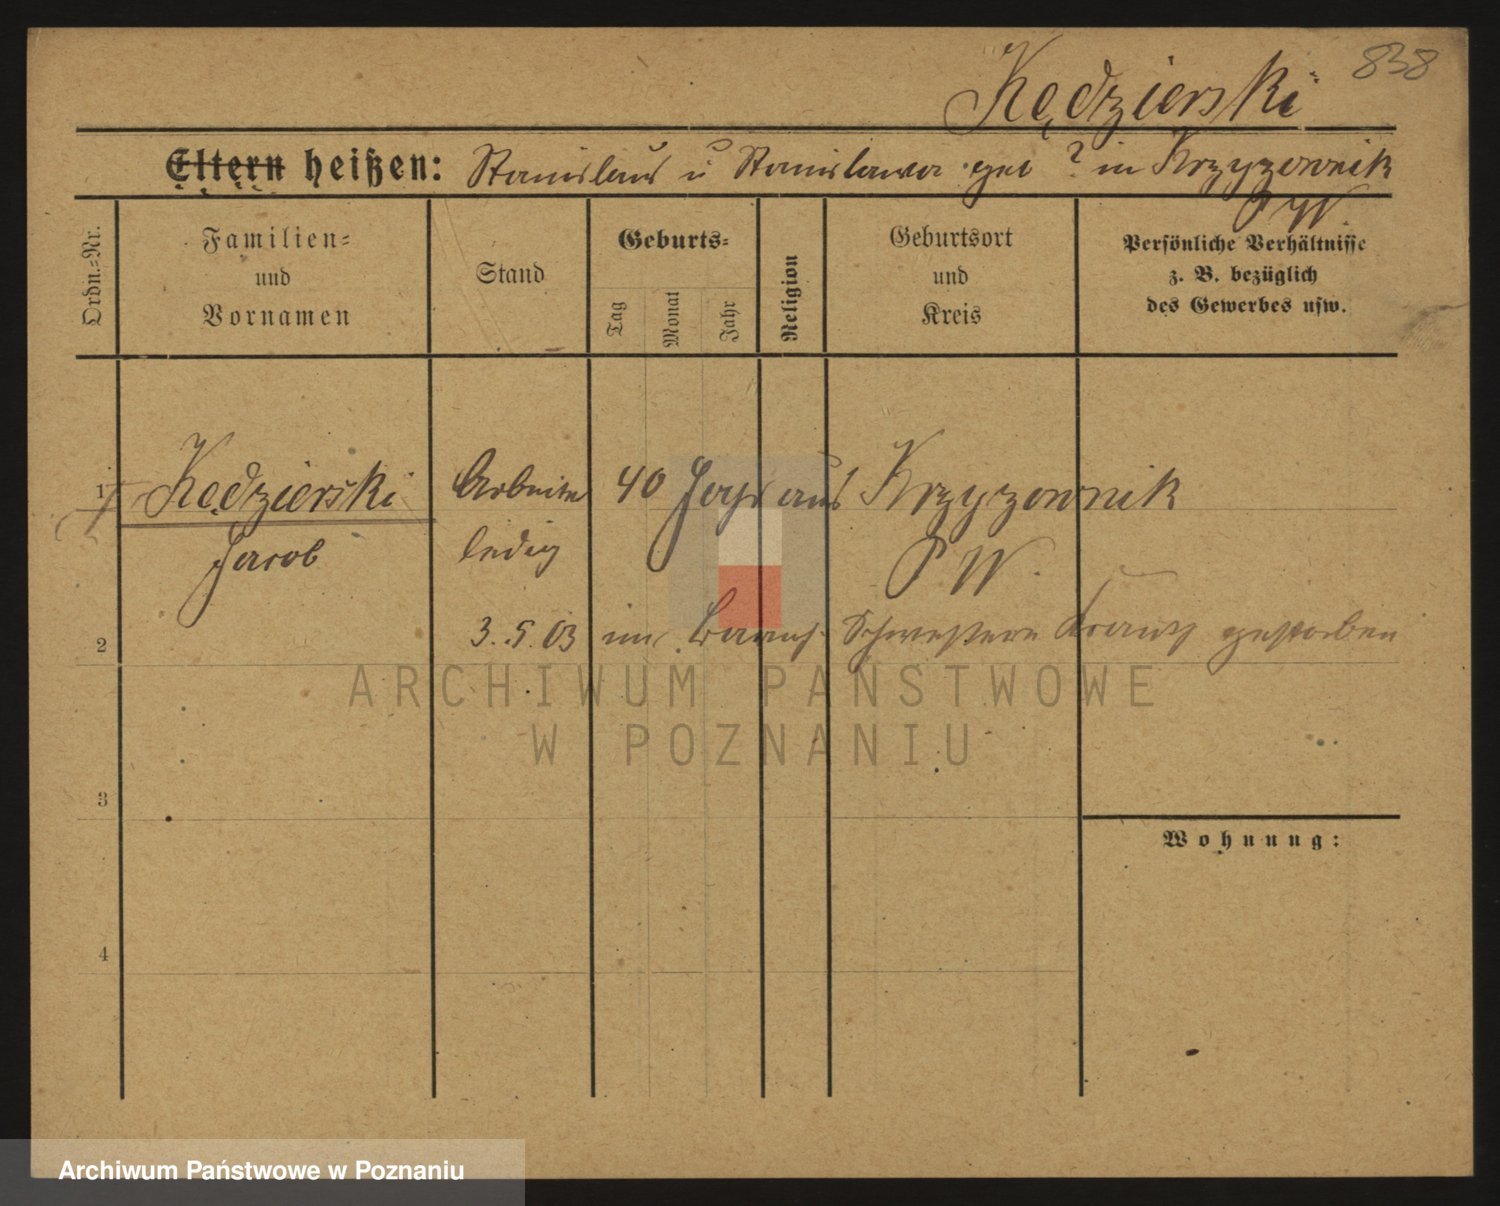 838
Kędzierski
Eltern heißen: Stanislaus u Stanislawa geb ? in Krzyzownik
P W.
Ordn.-Nr.
Familien-
und
Vornamen
Stand
Geburts-
Tag
Monat
Jahr
Religion
Geburtsort
und
Kreis
Persönliche Verhältnisse
z. B. bezüglich
des Gewerbes usw.
1 Kędzierski Arbeiter 40 Jahr aus Krzyzownik
Jacob ledig P W.
2 3. 5. 03 im Schwestern gestorben
3
Wohnung:
4
ARCHIWUM PAŃSTWOWE
W POZNANIU
Archiwum Państwowe w Poznaniu